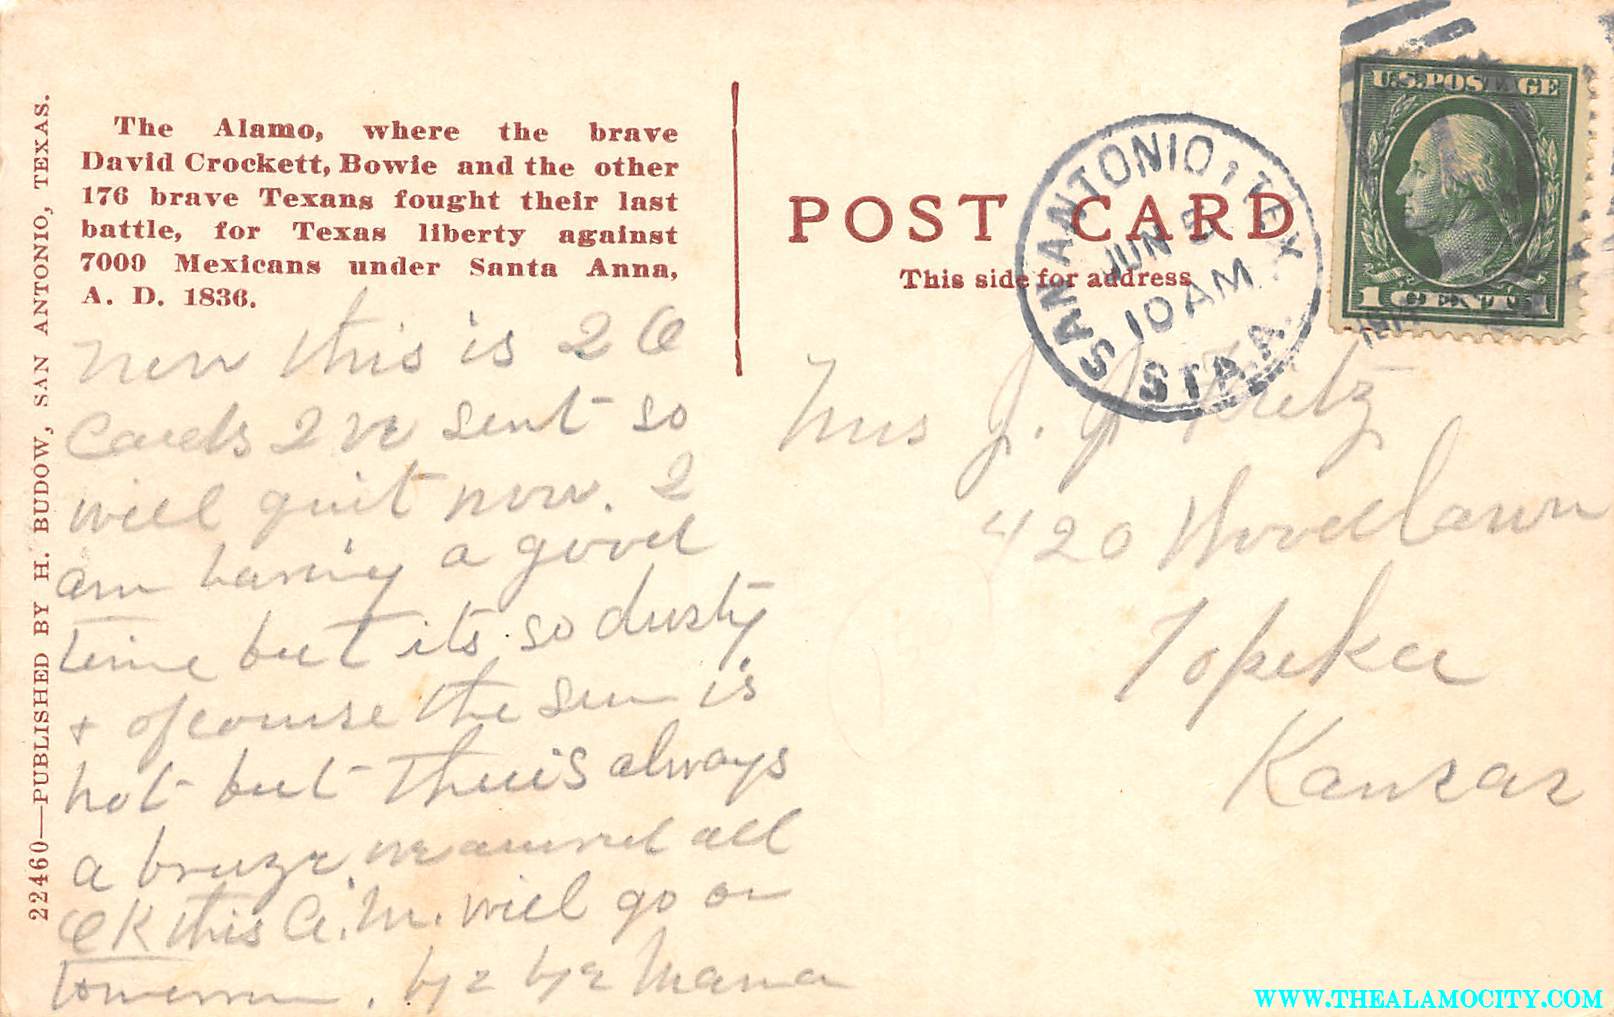 22460—PUBLISHED BY H. BUDOW, SAN ANTONIO, TEXAS.
The Alamo, where the brave
David Crockett, Bowie and the other
176 brave Texans fought their last
battle, for Texas liberty against
7000 Mexicans under Santa Anna,
A. D. 1836.
now this is 26
Cards I've sent so
will quit now. I
am having a good
time but its so dusty
+ of course the sun is
hot but there is always
a breeze. we arrived all
OK this A.M. will go on
tomorrow. bye bye Mama
POST CARD
This side for address
SAN ANTONIO, TEX.
JUN 5
10 AM
STA. A.
U.S. POSTAGE
1 CENT 1
Mrs J.
420 Woodlawn
Topeka
Kansas
WWW.THEALAMOCITY.COM